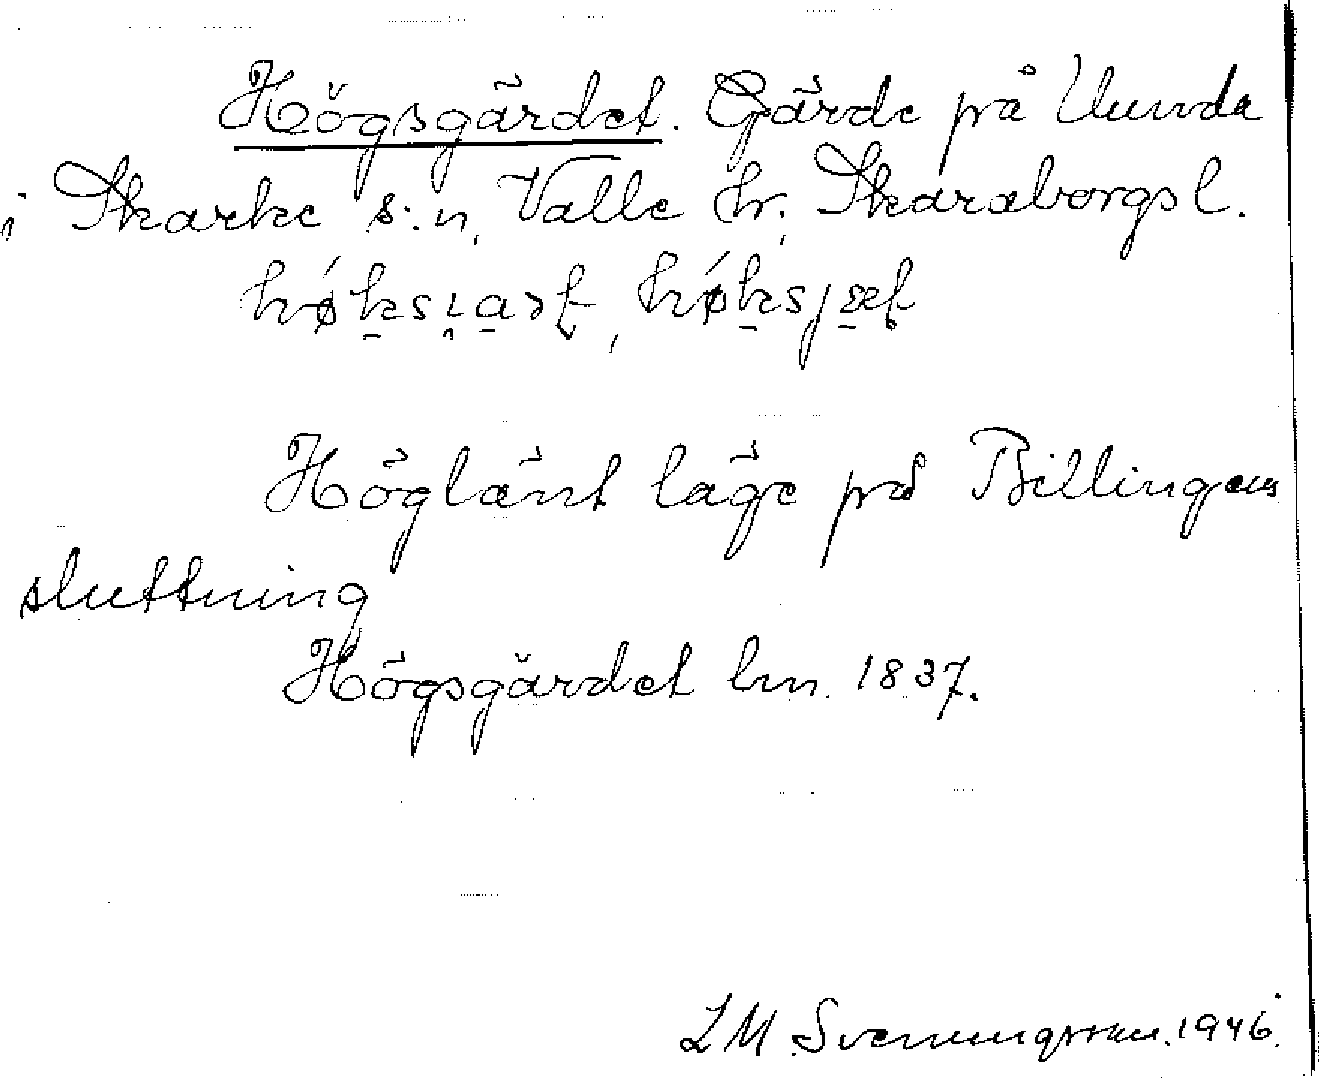 Högsgärdet. Gärde på Uunda
i Skarke s:n, Valle hr, Skaraborgs l.
Höglänt läge på Billingens
sluttning
Högsgärdet lm. 1837.
L M Svenungsson. 1946.